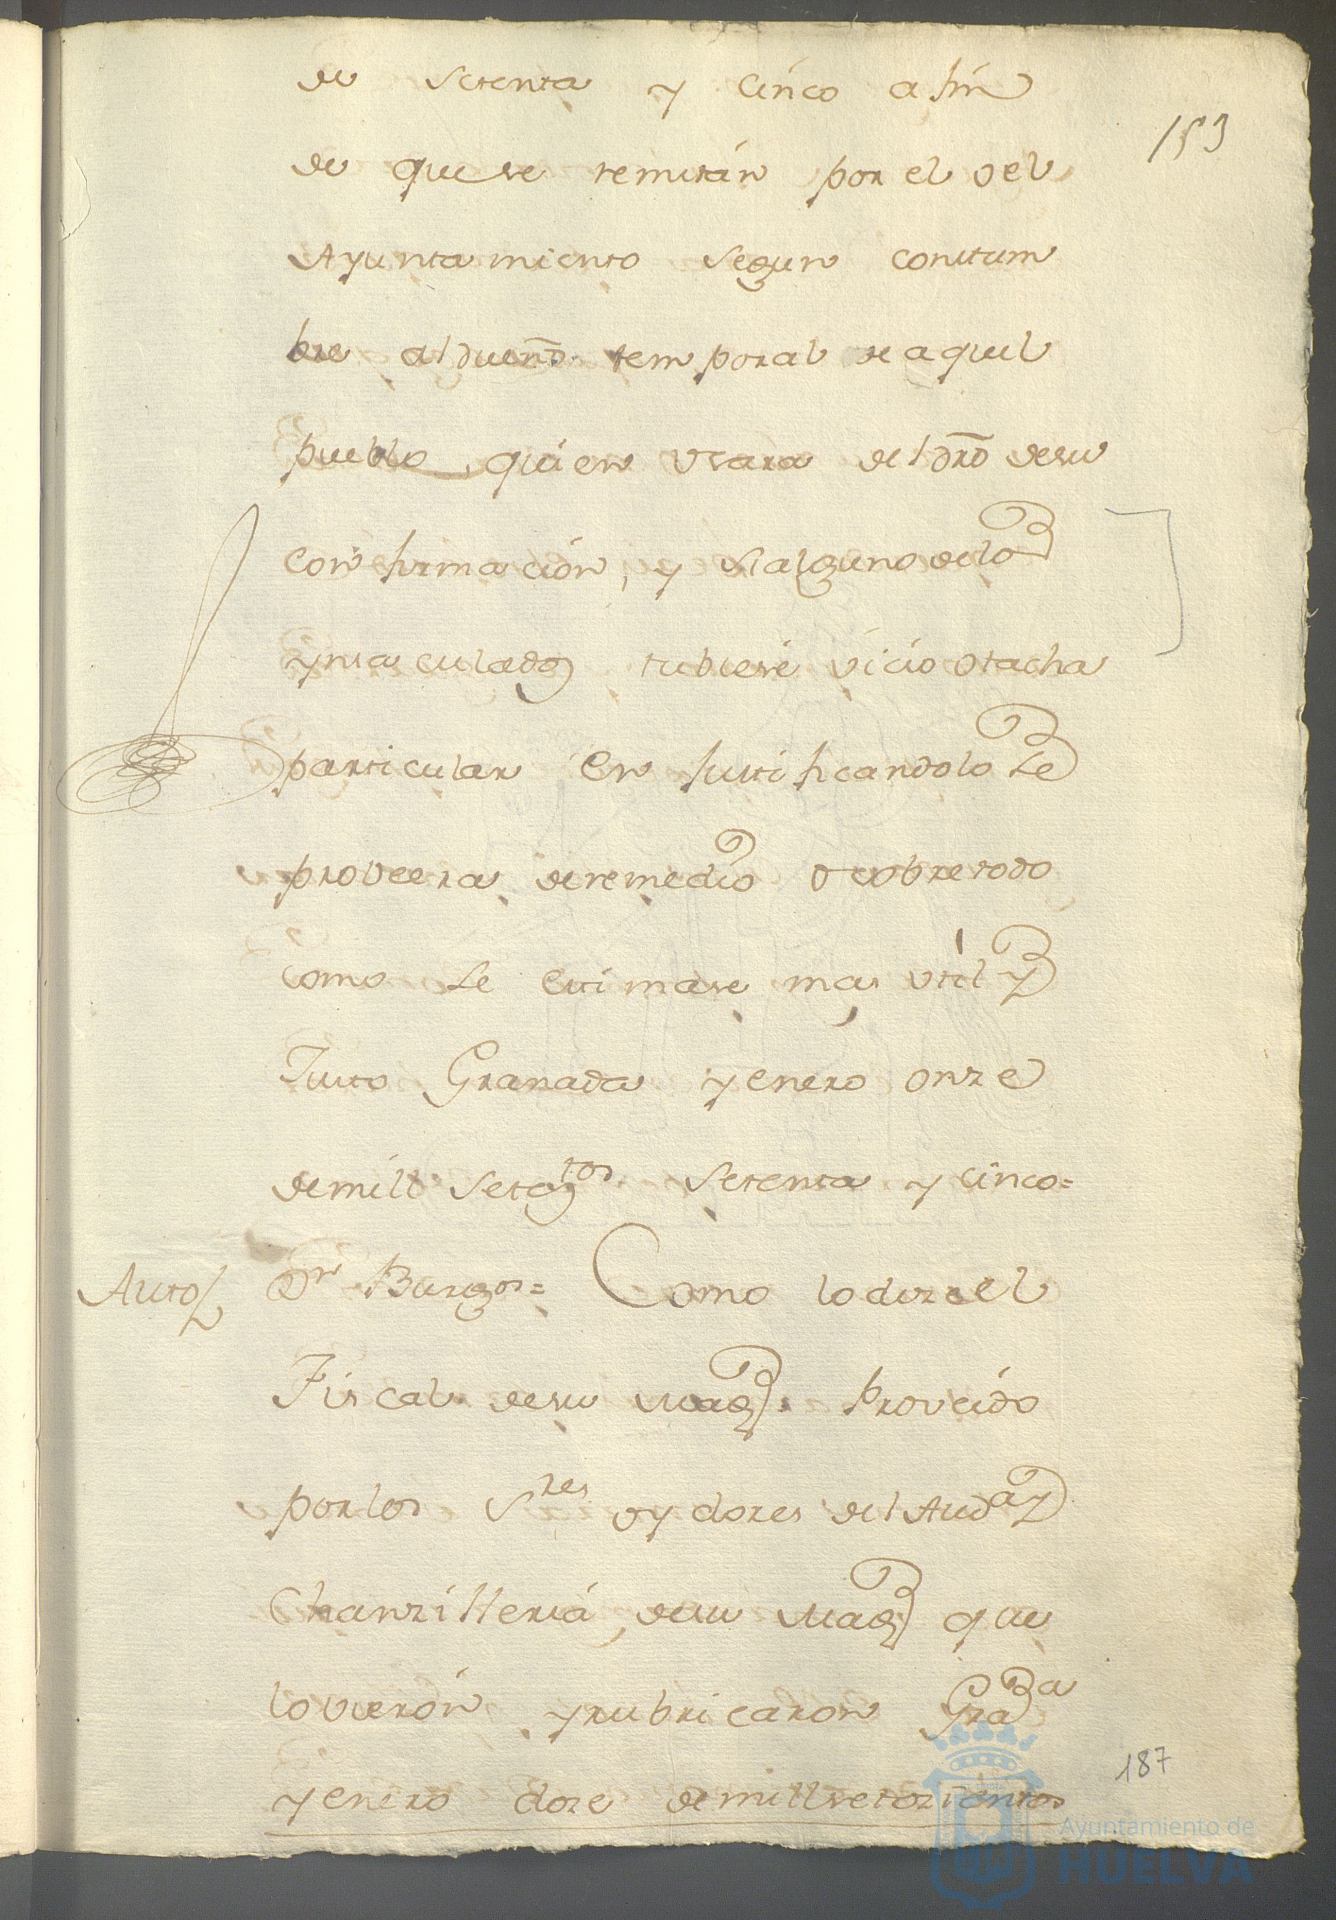 de setenta y cinco a fin
153
de que se remitán por el del
Ayuntamiento segun constum
bre al dueño temporal de aquel
pueblo, quien usara del dro desu
confirmación, y si alguno de los
ynsaculados tubiese vicio o tacha
particular en justificandolo se
proveera de remedio o sobre todo
como se estimase mas útil y
Justo Granada y enero onze
de mill seteztos setenta y cinco =
Auto
Dr Burgos = Como lo dize el
Fiscal desu Magd. Proveido
por los Sres oydores del Auda y
Chanzilleria, desu Magd que
lo vierón y rubricaron Grada
y enero doze de mill setezientos
187
Ayuntamiento de
HUELVA